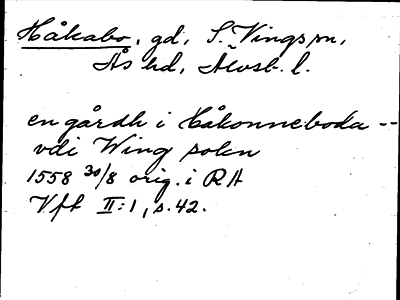 Håkabo, gd, S. Vings sn,
Ås hd, Älvsb. l.
en gårdh i Håkonneboda --
vdi Wing sokn
1558 30/8 orig. i RA
Vft II:1, s. 42.